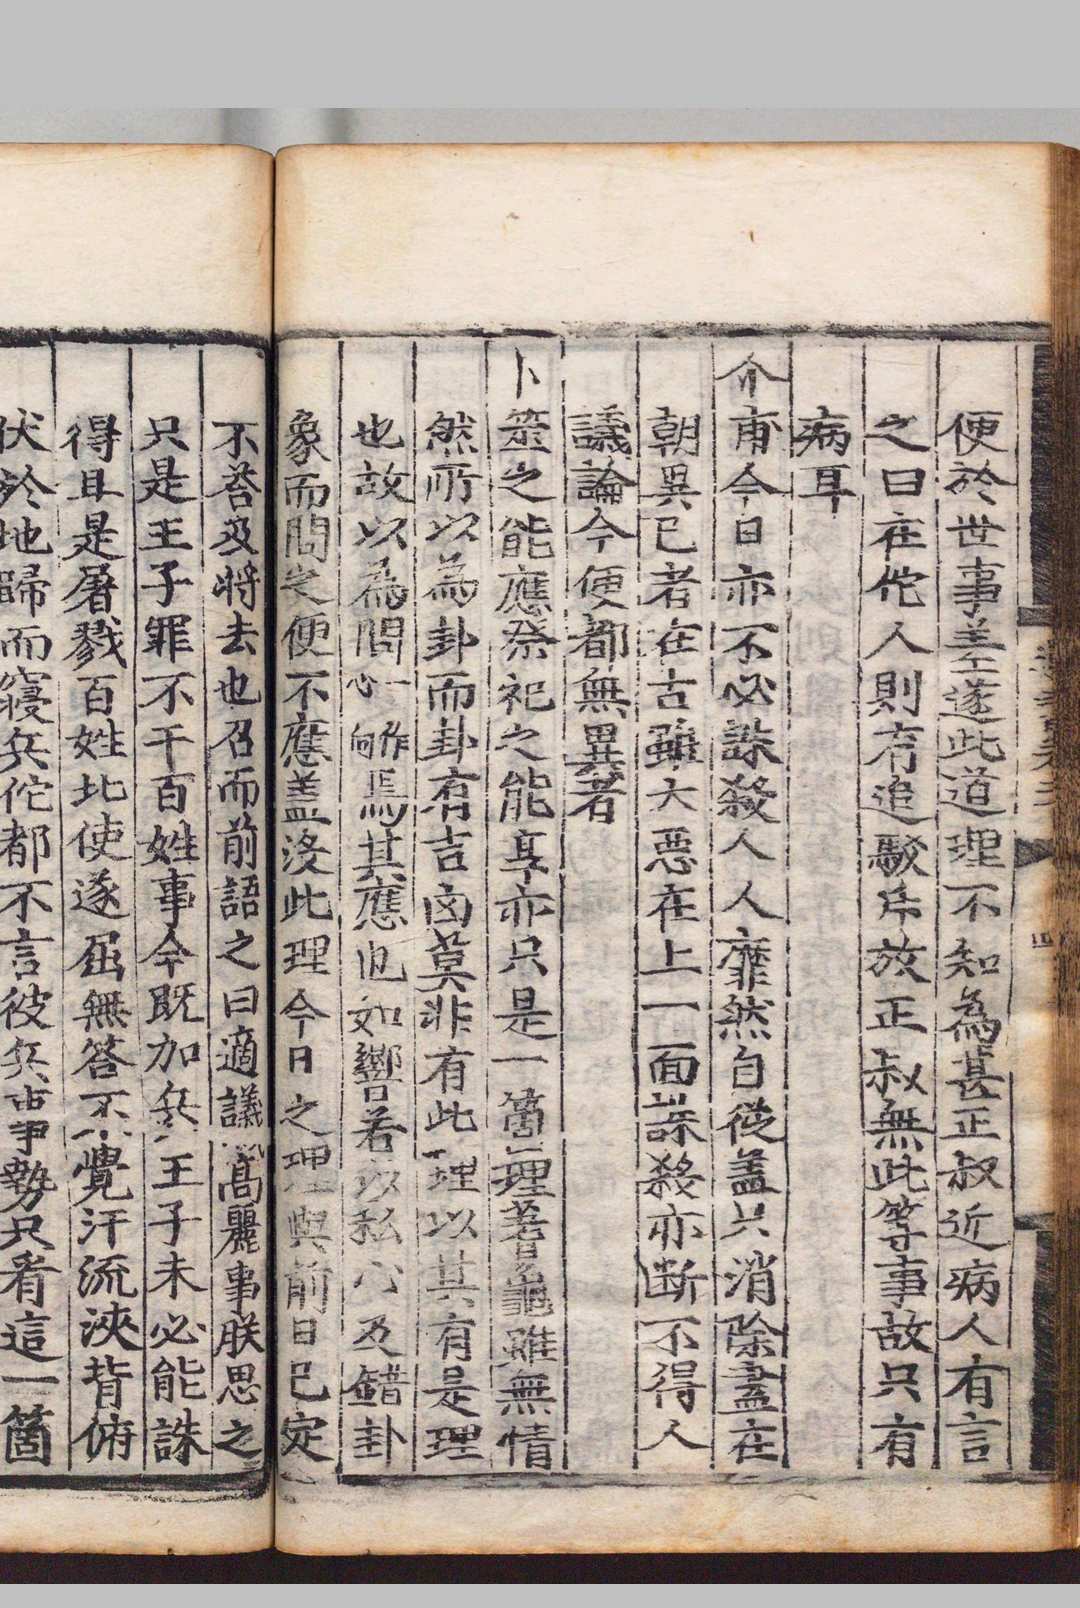 便於世事羊至遂此道理不知為甚正叔近病人有言
之曰在佗人則有追駁斥放正叔無此等事故只有
病耳
介甫今日亦不必誅殺人人靡然自從盖只消除盡在
朝異已者在古雖大惡在上一面誅殺亦斷不得人
議論今便都無異者
卜筮之能應祭祀之能享亦只是一箇理蓍龜雖無情
然所以為卦而卦有吉凶莫非有此理以其有是理
也故以為問心向焉其應也如響若以私心及錯卦
象而問之便不應盖沒此理今日之理與前日已定
不答及將去也召而前語之曰適議高麗事朕思之
只是王子罪不干百姓事今既加兵王子未必能誅
得且是屠戮百姓北使遂屈無答不覺汗流浹背俯
伏於地歸而寢兵佗都不言彼兵事勢只看這一箇